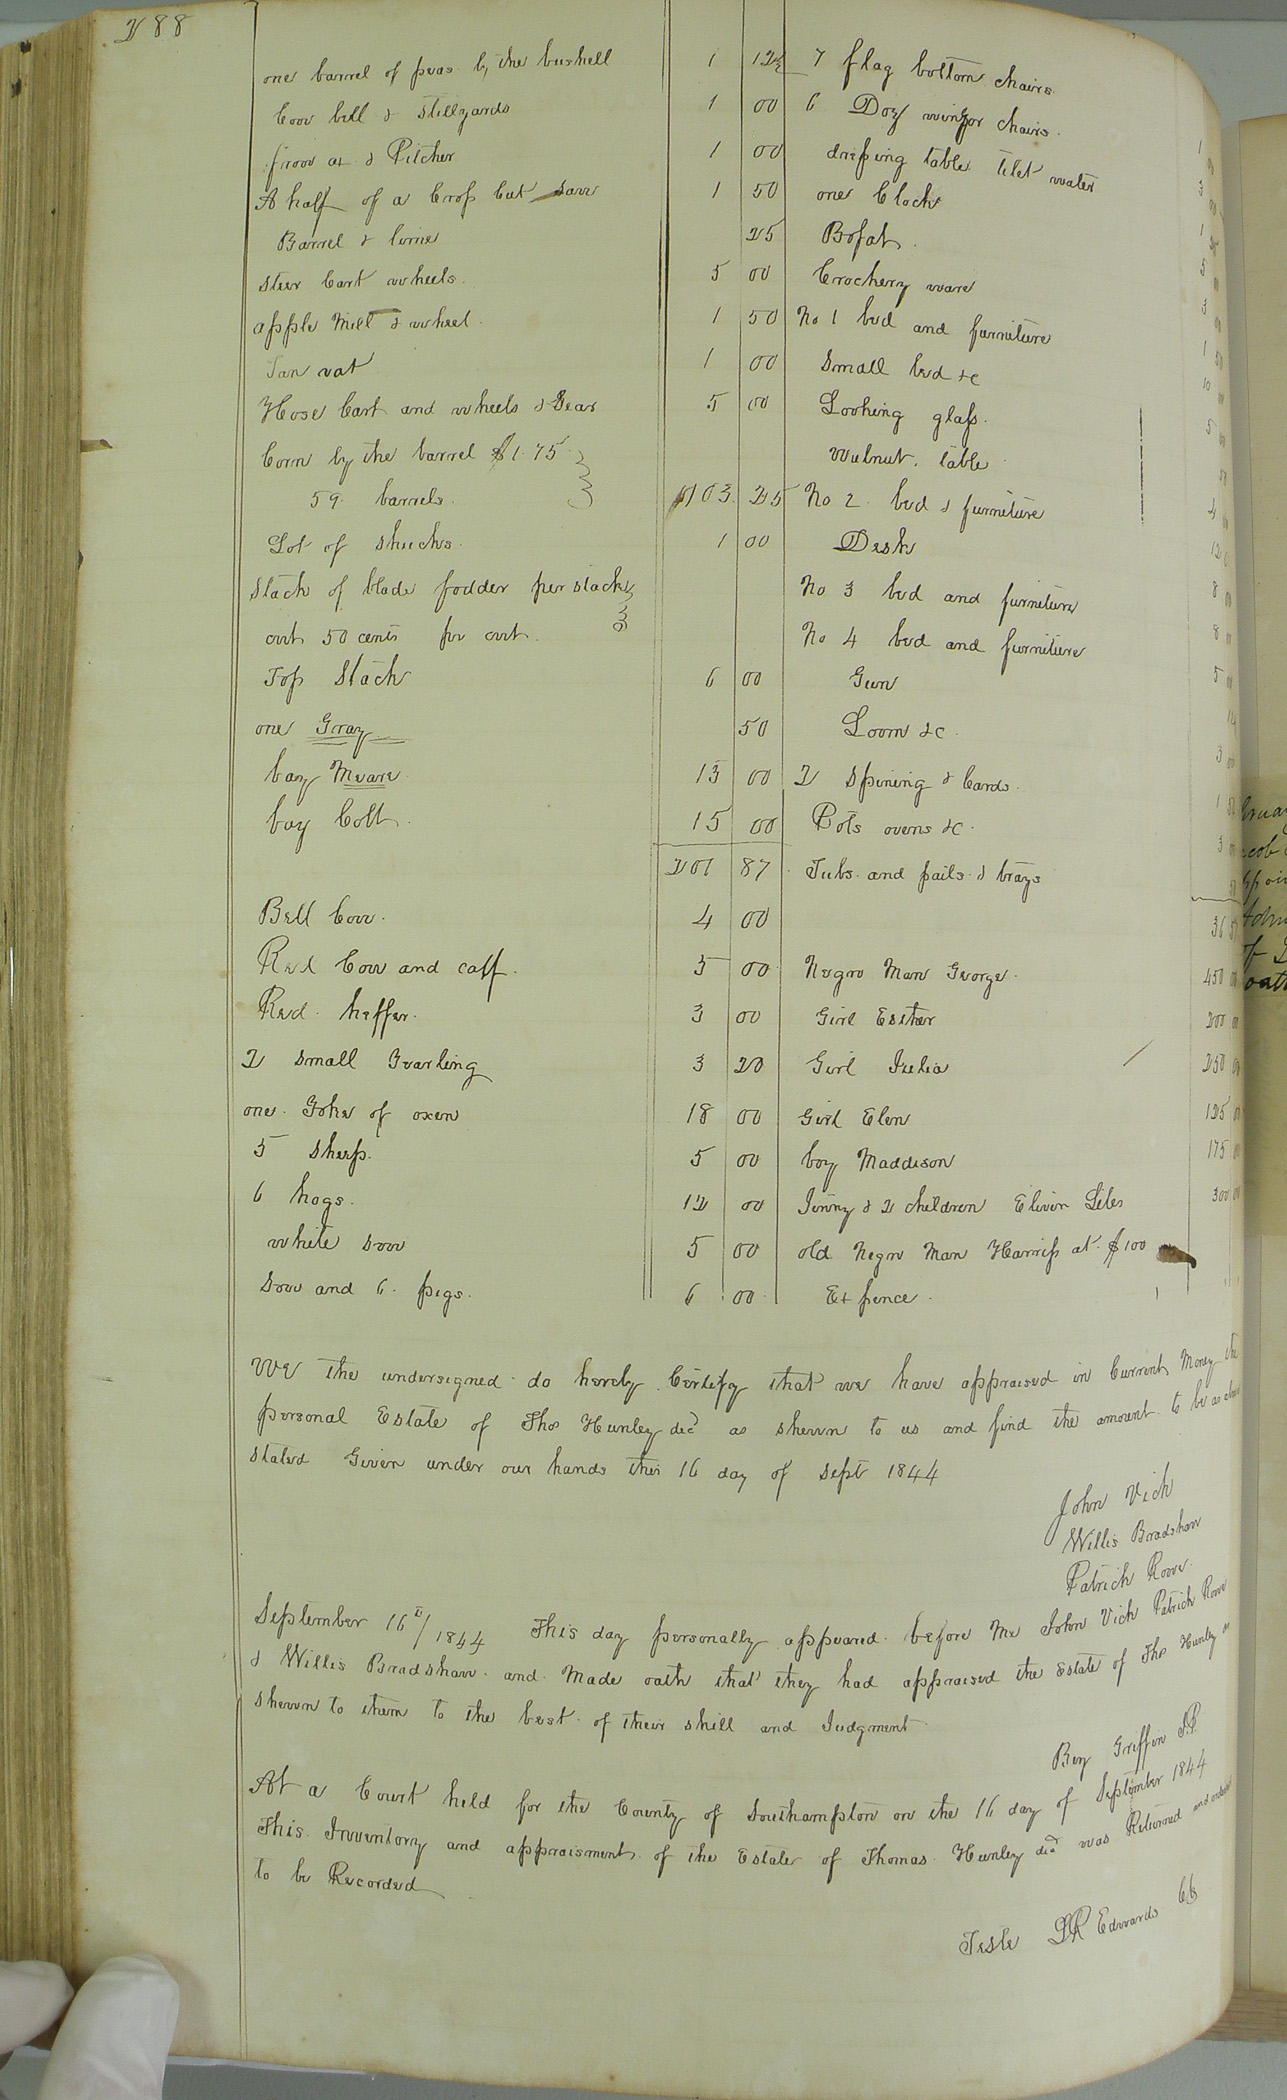 288
one barrel of peas by the bushell 1 12½
Cow bell & Stillyards 1 00
frow ax & Pitcher 1 00
A half of a Crop Cut Saw 1 50
Barrel & lime 25
Steer Cart wheels 5 00
apple Mill & wheel 1 50
Tan vat 1 00
Hose Cart and wheels & Gear 5 00
Corn by the barrel $1.75
59 barrels 103 25
Lot of Shucks 1 00
Stack of blade fodder per stack
cwt 50 cents per cwt
Top Stack 6 00
one Gray 50
bay Meare 13 00
bay Colt 15 00
201 87
Bell Cow 4 00
Red Cow and calf 5 00
Red heffer 3 00
2 Small Yearling 3 20
one Yoke of oxen 18 00
5 Sheep 5 00
6 hogs 12 00
white Sow 5 00
Sow and 6 pigs 6 00
7 flag bottom chairs
6 Doz winzor chairs
dressing table tilet water
one Clock
Bofat
Crockery ware
No 1 bed and furniture
Small bed &c
Looking glass
Walnut table
No 2 bed & furniture
Desk
No 3 bed and furniture
No 4 bed and furniture
Gun
Loom &c
2 Spining & Cards
Pots ovens &c
Tubs and pails & trays
Negro Man George 450 00
Girl Esther 200 00
Girl Julia 250 00
Girl Elen 125 00
boy Maddison 175 00
Jinny & 2 children Elivin Liles 300 00
old Negro Man Harriss at $100
Expence
We the undersigned do hereby Certify that we have appraised in Current Money the
personal Estate of Thos Hunley decd as shewn to us and find the amount to be as above
Stated Given under our hands this 16 day of Sept 1844
John Vick
Willis Bradshaw
Patrick Rowe
September 16th/1844 This day personally appeared before Me John Vick Patrick Rowe
& Willis Bradshaw and Made oath that they had appraised the Estate of Thos Hunley as
Shewn to them to the best of their skill and Judgment
Benj Griffin J.P.
At a Court held for the County of Southampton on the 16 day of September 1844
This Inventory and appraisment of the Estate of Thomas Hunley decd was Returned and ordered
to be Recorded
Teste LR Edwards CC